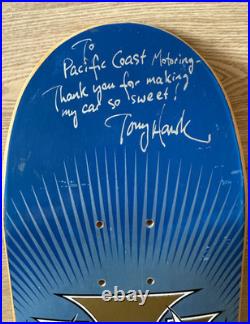 To
Pacific Coast Motoring-
Thank you for making
my car so sweet!
Tony Hawk